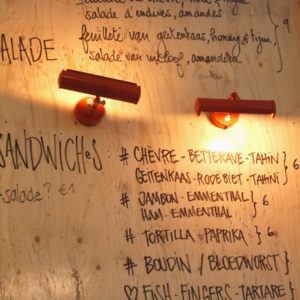 salade d'endives, amandes
feuilleté van geitenkaas, honing & tijm,
SALADE
salade van witloof, amandelen
SANDWICHeS
# CHÈVRE - BETTERAVE - TAHIN } 6
-salade? €1
GEITENKAAS - RODE BIET - TAHINI
# JAMBON - EMMENTHAL } 6
HAM - EMMENTHAL
# TORTILLA - PAPRIKA } 6
# BOUDIN / BLOEDWORST }
♡ FISH-FINGERS-TARTARE